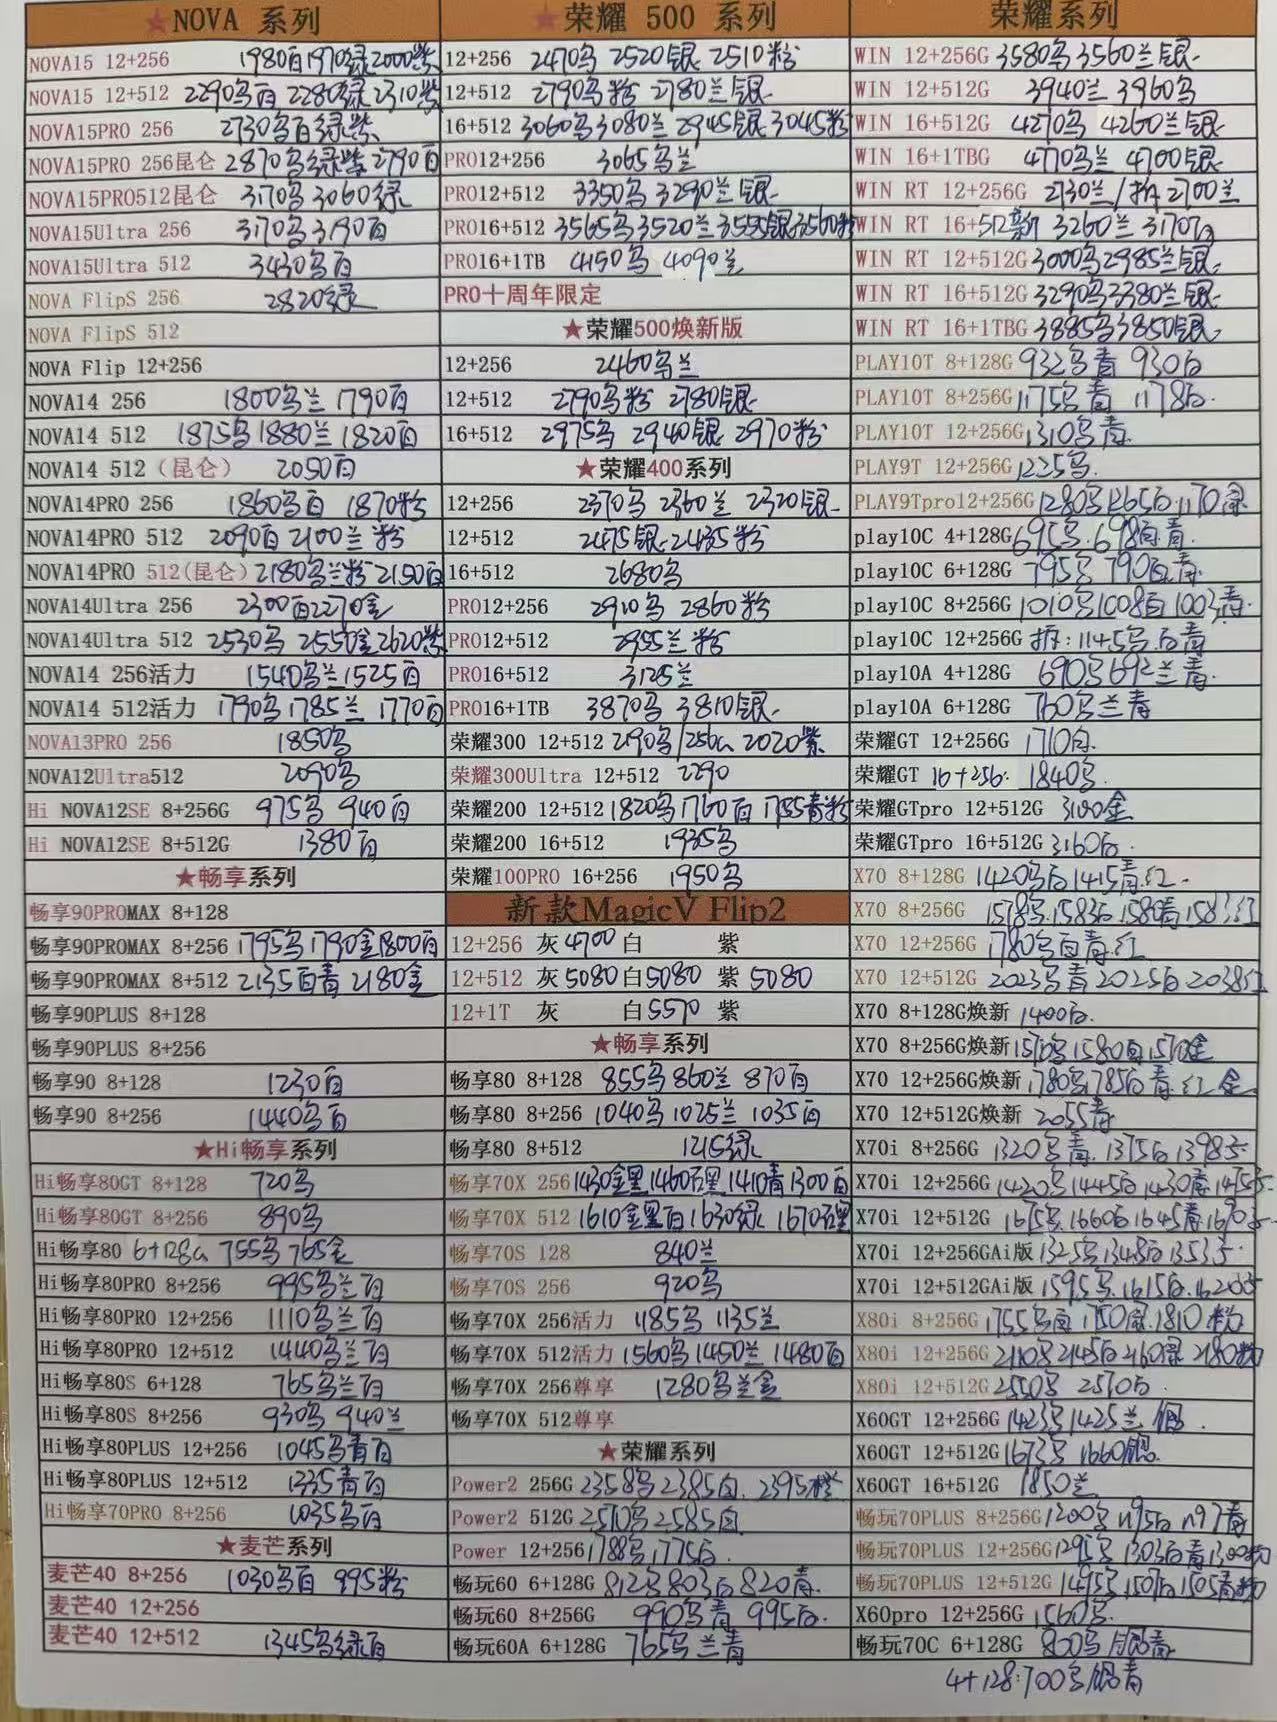 ★NOVA 系列
NOVA15 12+256 1980白1970绿2000紫
NOVA15 12+512 2290乌白 2280绿 2310紫
NOVA15PRO 256 2730乌白绿紫
NOVA15PRO 256昆仑 2870乌绿紫 2790白
NOVA15PRO512昆仑 3170乌 3060绿
NOVA15Ultra 256 3170乌3190白
NOVA15Ultra 512 3430乌白
NOVA FlipS 256 2820绿
NOVA FlipS 512
NOVA Flip 12+256
NOVA14 256 1800乌兰 1790白
NOVA14 512 1875乌1880兰1820白
NOVA14 512（昆仑） 2050白
NOVA14PRO 256 1860乌白 1870粉
NOVA14PRO 512 2090白 2100兰 粉
NOVA14PRO 512(昆仑) 2180乌兰粉 2150白
NOVA14Ultra 256 2300白2270金
NOVA14Ultra 512 2530乌 2550金2620紫
NOVA14 256活力 1540乌兰1525白
NOVA14 512活力 1790乌1785兰 1770白
NOVA13PRO 256 1850乌
NOVA12Ultra512 2090乌
Hi NOVA12SE 8+256G 975乌 940白
Hi NOVA12SE 8+512G 1380白
★畅享系列
畅享90PROMAX 8+128
畅享90PROMAX 8+256 1795乌1790金1800白
畅享90PROMAX 8+512 2135白青 2180金
畅享90PLUS 8+128
畅享90PLUS 8+256
畅享90 8+128 1230白
畅享90 8+256 1440乌白
★Hi畅享系列
Hi畅享80GT 8+128 720乌
Hi畅享80GT 8+256 890乌
Hi畅享80 6+128G 755乌 765金
Hi畅享80PRO 8+256 995乌兰白
Hi畅享80PRO 12+256 1110乌兰白
Hi畅享80PRO 12+512 1440乌兰白
Hi畅享80S 6+128 765乌兰白
Hi畅享80S 8+256 930乌 940兰
Hi畅享80PLUS 12+256 1045乌青白
Hi畅享80PLUS 12+512 1335青白
Hi畅享70PRO 8+256 1035乌白
★麦芒系列
麦芒40 8+256 1030乌白 995粉
麦芒40 12+256
麦芒40 12+512 1345乌绿白
★荣耀 500 系列
12+256 2470乌 2520银 2510粉
12+512 2790乌粉 2780兰银
16+512 3060乌3080兰 2945银 3045粉
PRO12+256 3065乌兰
PRO12+512 3350乌 3290兰银
PRO16+512 3565乌3520兰3555银3560粉
PRO16+1TB 4150乌 4090兰
PRO十周年限定
★荣耀500焕新版
12+256 2460乌兰
12+512 2790乌粉 2780银
16+512 2975乌 2940银 2970粉
★荣耀400系列
12+256 2370乌 2360兰 2320银
12+512 2475银 2435粉
16+512 2680乌
PRO12+256 2910乌 2860粉
PRO12+512 2955兰粉
PRO16+512 3125兰
PRO16+1TB 3870乌 3810银
荣耀300 12+512 2190乌/256G 2020紫
荣耀300Ultra 12+512 2290
荣耀200 12+512 1820乌1760白 1755青粉
荣耀200 16+512 1935乌
荣耀100PRO 16+256 1950乌
新款MagicV Flip2
12+256 灰4700 白 紫
12+512 灰5080 白5080 紫5080
12+1T 灰 白5570 紫
★畅享系列
畅享80 8+128 855乌860兰 870白
畅享80 8+256 1040乌1025兰 1035白
畅享80 8+512 1215绿
畅享70X 256 1430金黑1460石黑1410青1300白
畅享70X 512 1610金黑白1630绿 1670石黑
畅享70S 128 840兰
畅享70S 256 920乌
畅享70X 256活力 1185乌 1135兰
畅享70X 512活力 1560乌1450兰 1480白
畅享70X 256尊享 1280乌兰金
畅享70X 512尊享
★荣耀系列
Power2 256G 2358乌2385白 2395橙
Power2 512G 2570乌2585白
Power 12+256 1788乌1775白
畅玩60 6+128G 812乌803白820青
畅玩60 8+256G 990乌青 995白
畅玩60A 6+128G 765乌兰青
荣耀系列
WIN 12+256G 3580乌3560兰银
WIN 12+512G 3940兰 3960乌
WIN 16+512G 4270乌 4260兰银
WIN 16+1TBG 4770乌兰 4700银
WIN RT 12+256G 2730兰/拆2700兰
WIN RT 16+512新 3260兰 3170白
WIN RT 12+512G 3000乌2985兰银
WIN RT 16+512G 3290乌3380兰银
WIN RT 16+1TBG 3885乌3850银
PLAY10T 8+128G 932乌青 930白
PLAY10T 8+256G 1175乌青 1178白
PLAY10T 12+256G 1310乌青
PLAY9T 12+256G 1225乌
PLAY9Tpro12+256G 1280乌1265白1170
play10C 4+128G 695乌 698白青
play10C 6+128G 795乌 790白青
play10C 8+256G 1010乌1008白 1003青
play10C 12+256G 拆:1145乌白青
play10A 4+128G 690乌692兰青
play10A 6+128G 760乌兰青
荣耀GT 12+256G 1710白
荣耀GT 16+256 1840乌
荣耀GTpro 12+512G 3100金
荣耀GTpro 16+512G 3160白
X70 8+128G 1420乌白1415青红
X70 8+256G 1578乌1583白1580青1583红
X70 12+256G 1780乌白青红
X70 12+512G 2023乌青 2025白 2038红
X70 8+128G焕新 1400白
X70 8+256G焕新 1570乌1580白1570金
X70 12+256G焕新 1780乌1785白青红金
X70 12+512G焕新 2055青
X70i 8+256G 1320乌青 1375白1398
X70i 12+256G 1420乌1445白1430青1475
X70i 12+512G 1675乌1660白1645青1690
X70i 12+256GAi版 1325乌1348白1353
X70i 12+512GAi版 1595乌1615白1620
X80i 8+256G 1755乌白 1750 1810粉
X80i 12+256G 2110乌2145白2160绿2180粉
X80i 12+512G 2550乌 2570白
X60GT 12+256G 1423乌1425兰银
X60GT 12+512G 1673乌 1660银
X60GT 16+512G 1850兰
畅玩70PLUS 8+256G 1200乌1195白1197青
畅玩70PLUS 12+256G 1295乌1303白青1300粉
畅玩70PLUS 12+512G 1495乌1507白1505青粉
X60pro 12+256G 1560乌
畅玩70C 6+128G 800乌银青
4+128:700乌银青